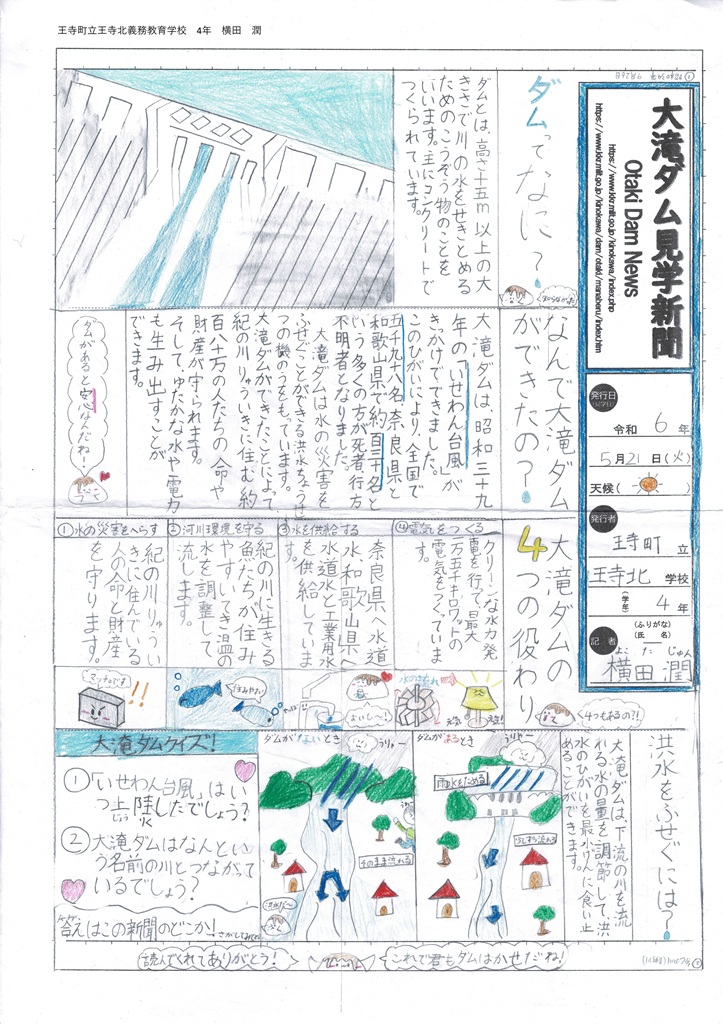 王寺町立王寺北義務教育学校 4年 横田 潤
大滝ダム見学新聞
Otaki Dam News
https://www.kkr.mlit.go.jp/kinokawa/index.php
https://www.kkr.mlit.go.jp/kinokawa/dam/otaki/manaberu/index.htm
発行日
令和 6 年
5月21日(火)
天候( )
発行者
王寺町 立
王寺北 学校
(学年) 4 年
記者
(ふりがな)
(氏 名)
よこ た じゅん
横田 潤
ダムってなに?
ダムとは、高さ十五m以上の大
きさで川の水をせきとめる
ためのこうぞう物のことを
いいます。主にコンクリートで
つくられています。
なんで大滝ダム
ができたの?
大滝ダムは昭和三十九
年の「いせわん台風」が
きっかけでできました。
このひがいにより、全国で
五千九十八名、奈良県と
和歌山県で約百三十名と
いう多くの方が死者、行方
不明者となりました。
大滝ダムは水の災害を
ふせぐことができる洪水ちょうせ
つの機のうをもっています。
大滝ダムができたことによって
紀の川りゅういきに住む約
百八十万の人たちの命や
財産が守られます。
そして、ゆたかな水や電力
も生み出すことが
できます。
ダムがあると安心なんだね!
大滝ダムの
4つの役わり
4つもあるの?!
④電気をつくる
クリーンな水力発
電を行って、最大
一万五千キロワットの
電気をつくていま
す。
③水を供給する
奈良県へ水道
水、和歌山県へ
水道水と工業用水
を供給していま
す。
②河川環境を守る
紀の川に生きる
魚たちが住み
やすいてき温の
水を調整して
流します。
①水の災害をへらす
紀の川りゅうい
きに住んでいる
人の命と財産
を守ります。
マッチョです
住みやすい
おいしい~
水のながれ
洪水をふせぐには?
大滝ダムは、下流の川を流
れる水の量を調節して、洪
水のひがいを最小げんに食い止
めることができます。
ダムがあるとき
雨水をためる
少しずつ流れる
ダムがないとき
そのまま流れる
大滝ダムクイズ!
①「いせわん台風」はい
つ上陸したでしょう?
②大滝ダムはなんとい
う名前の川とつながて
いるでしょう?
答えはこの新聞のどこか!さがしてみてね
読んでくれてありがとう!
これで君もダムはかせだね!